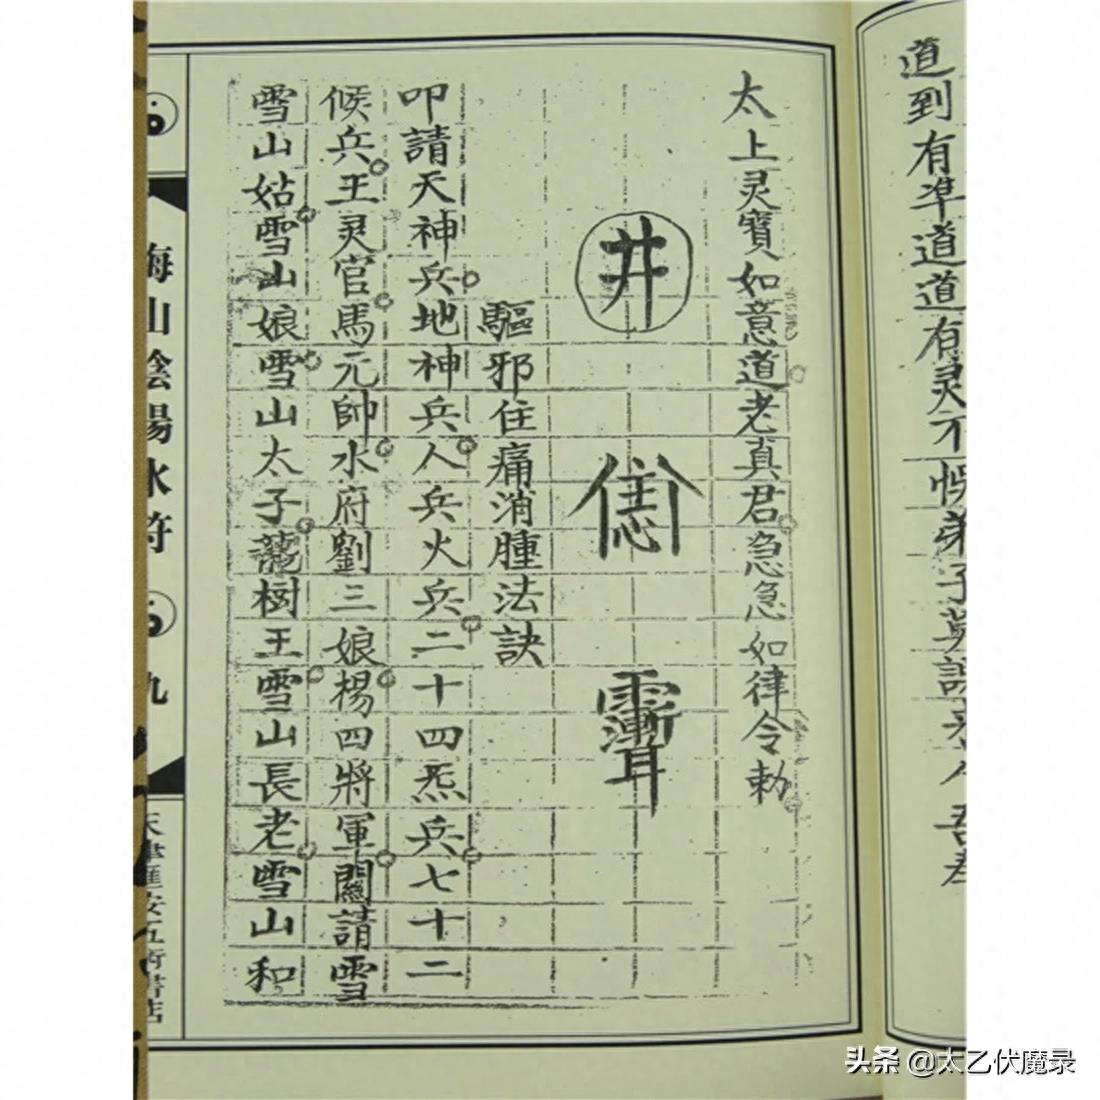 道到有準道道有灵不悮弟子
太上灵寶如意道老真君急急如律令勅
井
驅邪住痛消腫法訣
叩請天神兵地神兵人兵火兵二十四炁兵七十二
候兵王灵官馬元帥水府劉三娘楊四將軍關請雪
雪山姑雪山娘雪山太子龍樹王雪山長老雪山和
梅山陰陽水符
九
天津匯安五術書店
头条 @太乙伏魔录